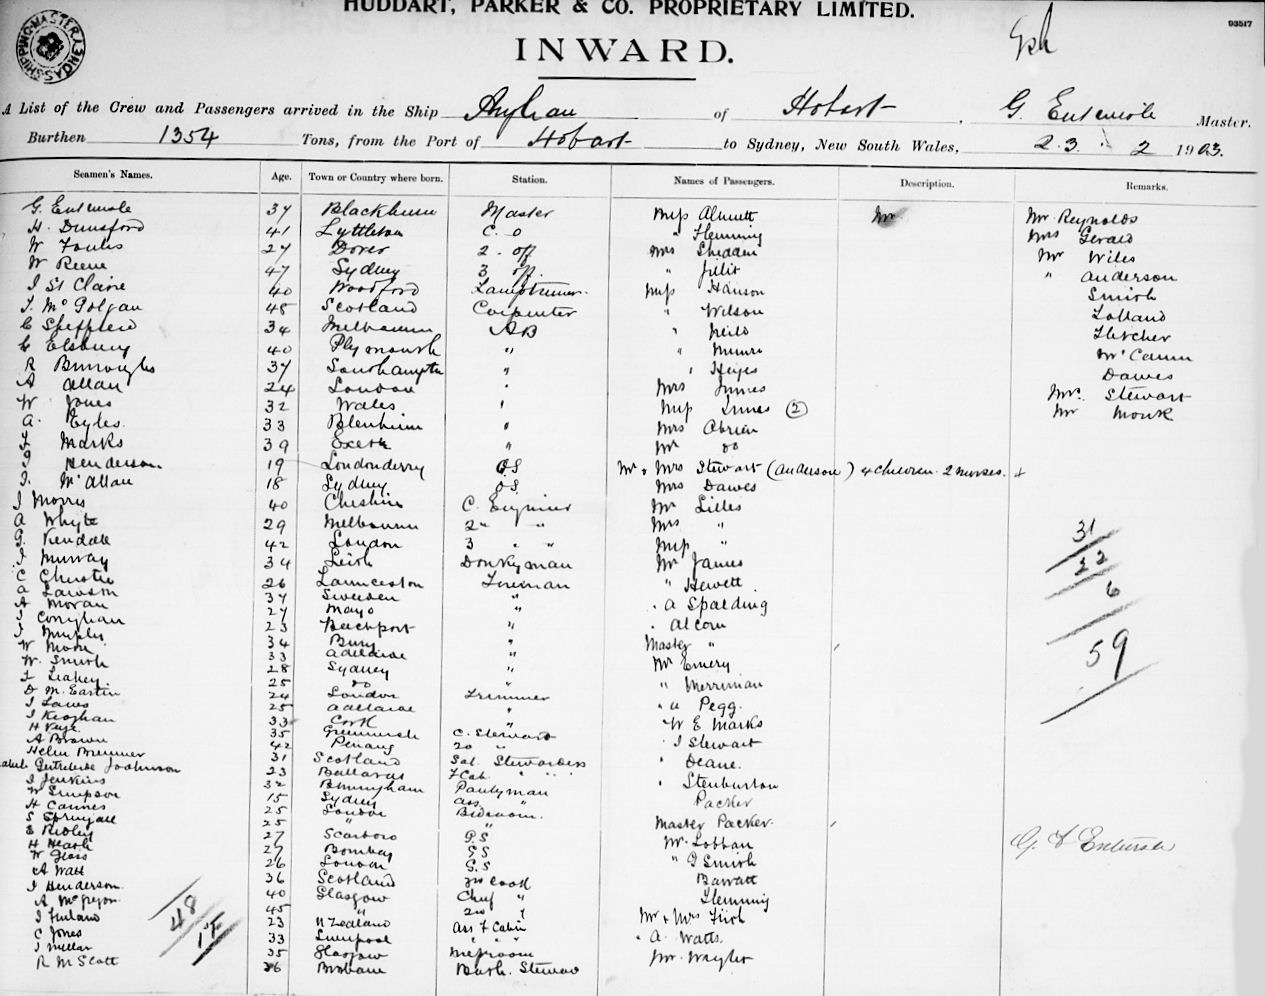 HUDDART, PARKER & CO. PROPRIETARY LIMITED.
93517
INWARD.
A List of the Crew and Passengers arrived in the Ship of Hobart. G. Entwisle Master.
Burthen 1354 Tons, from the Port of Hobart to Sydney, New South Wales, 23 2 1903.
Seamen's Names. Age. Town or Country where born. Station. Names of Passengers. Description. Remarks.
G. Entwisle 37 Blackburn Master Miss Mr Mr Reynolds
H. Dunsford 41 Lyttleton C. O " Flemming Mrs Gerald
W Foulis 27 Dover 2 off Mrs Sheddan Mr Wiles
W Reene 47 Sydney 3 off. " " Anderson
J St Claire 40 Woodford Lamptrimmer Miss Hanson Smith
J. McGolgan 48 Scotland Carpenter " Wilson Lolland
C Sheppherd 34 Melbourne AB " Neild Fletcher
G Elsbury 40 Plymouth " " Munro McCann
R Burroughs 37 Southampton " " Heyes Dawes
A Allan 24 London " Mrs Innes Mrs. Stewart
W Jones 32 Wales " Miss Innes (2) Mr Monk
A. Eyles 33 Blenheim " Mrs Obrien
F Marks 39 Exeter " Mr do
J Henderson 19 Londonderry OS Mr & Mrs Stewart (Anderson) 4 children. 2 nurses. +
J. McAllan 18 Sydney OS. Mrs Dawes
J Morris 40 Cheshire C. Engineer Mr Lilles
A Whyte 29 Melbourne 2nd " Mrs " 31
G. Vendale 42 London 3 " " Miss " 22
J Murray 34 Leith Donkeyman Mr James 6
C Christie 26 Launceston Fireman " Hewett
A Lawson 37 Sweden " " A Spalding
A Moran 27 Mayo " " Alcorn 59
J Corrghan 23 Beechport " Master "
J Murphy 34 Bury " Mr Emery
W Moon 33 Adelaide " " Merriman
W. Smith 28 Sydney " " A Pegg.
J Leahey 25 do " W E Marks
D McEartin 24 London Trimmer J Stewart
J Lawes 25 Adelaide " " Deane.
J Keoghan 33 Cork " " Stenburton
H Kaye 35 Greenwich C. Steward Packer
A Brown 42 Penang 2d " Master Packer.
Helen Bremner 31 Scotland Sal. Stewardess Mr. Lobban
Gertrude Joahnson 23 Ballarat F Cab. " " G Smith
J Jenkins 32 Birmingham Pantryman Barratt
W Simpson 15 Sydney Ass. " Flemming
H Cannes 25 London Bedroom. Mr & Mrs Firth
S Springall 25 " " " A. Watts.
E Ridley 27 Scarboro G.S Mr.
H Heath 27 Bombay GS G. F Entwisle
W Glass 26 London G.S
A Watt 36 Scotland Cook
J Henderson 40 Glasgow Chef "
A McGregor 45 " 2nd "
J Finland 23 N Zealand Ass F Cabin
C Jones 33 Liverpool " " "
J Millar 35 Glasgow Messroom
R M Scott 26 Brisbane Bath. Steward
48